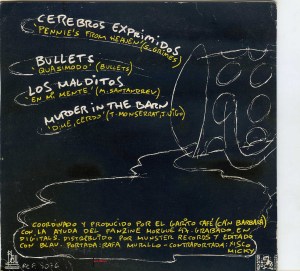 CEREBROS EXPRIMIDOS
"PENNIE'S FROM HEAVEN" (G.GRIMES)
BULLETS
"QUASIMODO" (BULLETS)
LOS MALDITOS
"EN MI MENTE" (M.SANTANDREU)
MURDER IN THE BARN
"DIME, CERDO" (T.MONSERRAT, J.VIGO)
COORDINADO Y PRODUCIDO POR EL GARITO CAFÉ (CAN BARBARÁ)
CON LA AYUDA DEL FANZINE MORGUE GRABADO EN
DIGITALS. DISTRIBUIDO POR MUNSTER RECORDS Y EDITADO
CON BLAU. PORTADA: RAFA MURILLO - CONTRAPORTADA: FISCO
MICKY